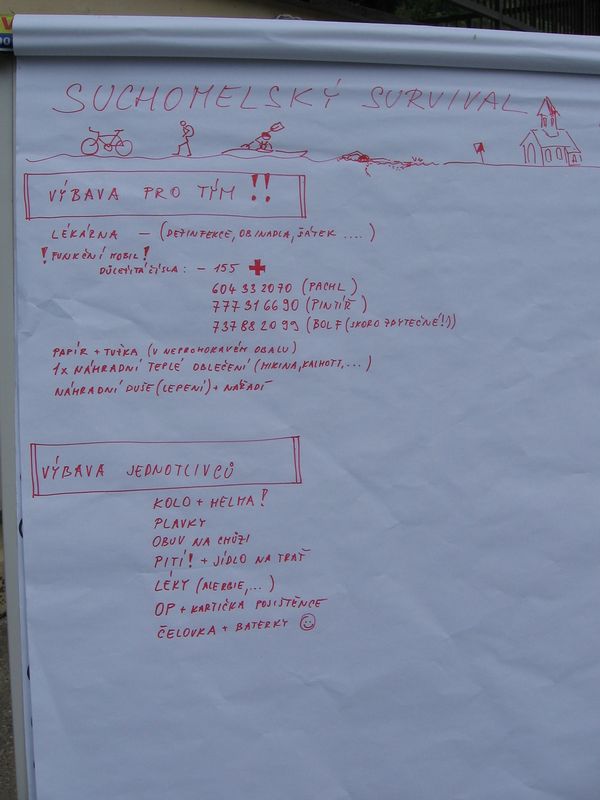 SUCHOMELSKÝ SURVIVAL
VÝBAVA PRO TÝM !!
LÉKÁRNA – (DEZINFEKCE, OBINADLA, ŠÁTEK ....)
! FUNKČNÍ MOBIL!
DŮLEŽITÁ ČÍSLA: – 155
604 33 20 70 (PACHL)
777 31 66 90 (PINTÍŘ)
737 88 20 99 (BOLF (SKORO ZBYTEČNÉ!))
PAPÍR + TUŽKA (V NEPROMOKAVÉM OBALU)
1x NÁHRADNÍ TEPLÉ OBLEČENÍ (MIKINA, KALHOTY, ...)
NÁHRADNÍ DUŠE (LEPENÍ) + NÁŘADÍ
VÝBAVA JEDNOTLIVCŮ
KOLO + HELMA!
PLAVKY
OBUV NA CHŮZI
PITÍ! + JÍDLO NA TRAŤ
LÉKY (ALERGIE, ...)
OP + KARTIČKA POJIŠTĚNCE
ČELOVKA + BATERKY